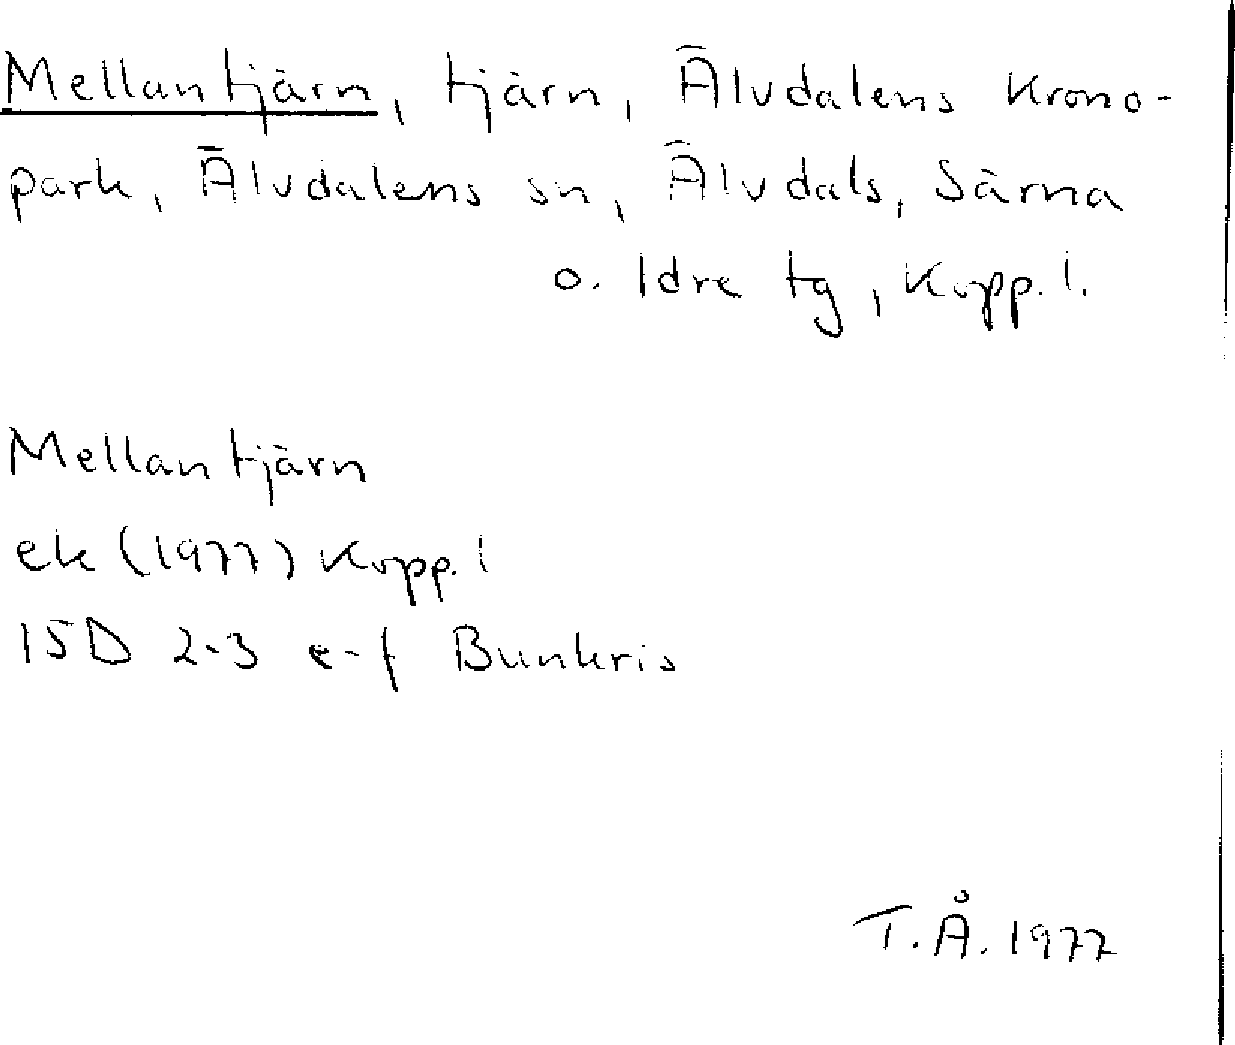 Mellantjärn, tjärn, Älvdalens Krono-
park, Älvdalens sn, Älvdals, Särna
o. Idre tg, Kopp. l.
Mellantjärn
ek (1977) Kopp. l
15D 2-3 e-f Bunkris
T.Å. 1977